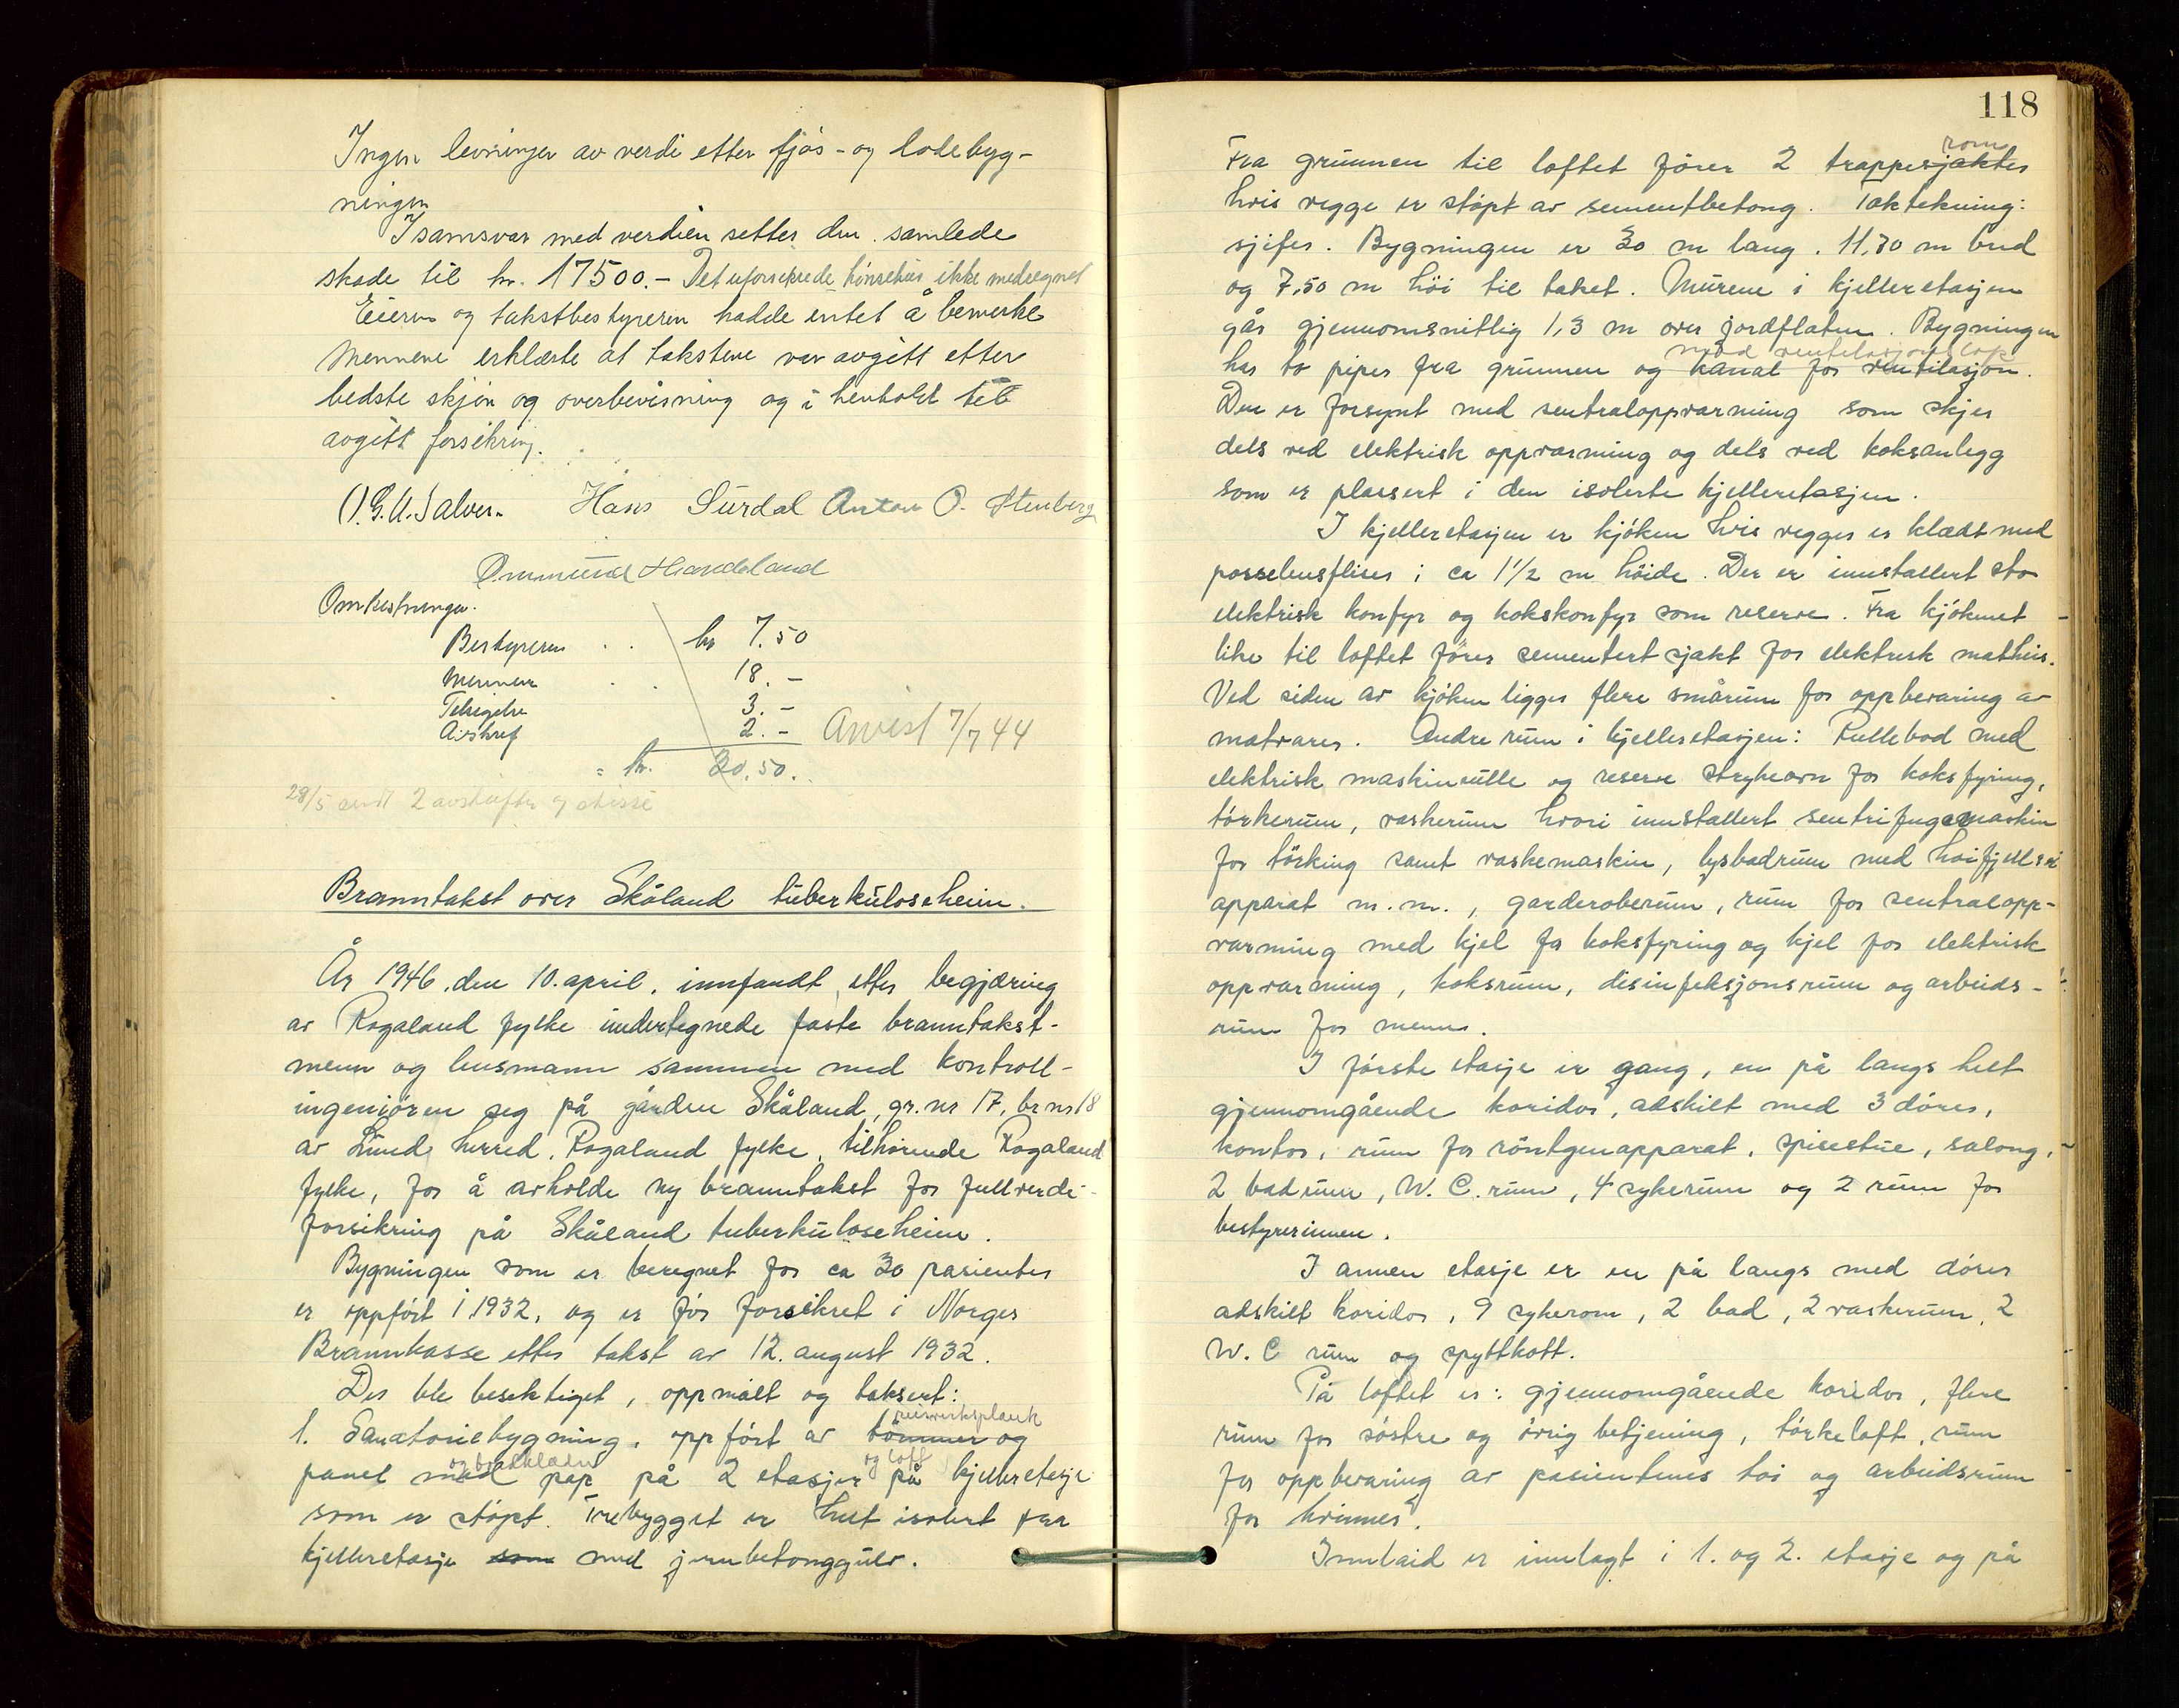 Ingen levninger av verdi etter fjøs- og lodebyg-
ningen
I samsvar med verdien settes den samlede
skade til kr. 17500.- Det uforsikrede hönsehus ikke medregnet
Eieren og takstbestyreren hadde intet å bemerke
Mennene erklærte at taksten var avgitt etter
bedste skjön og overbevisning og i henhold til
avgitt forsikring.
O. G. U. Salves. Hans Surdal Anton O. Stenberg
Ommund Handeland
Omkostninger.
Bestyreren . . kr 7.50
Mennene . . 18.-
Telsigelse 3.-
Avskref 2.- Anvist 7/7 44
= kr. 30.50.
28/5 sendt 2 avskrifter og skisse
Branntakst over Skåland tuberkuloseheim.
År 1946, den 10. april, innfandt etter begjæring
av Rogaland fylke undertegnede faste branntakst-
menn og lensmann sammen med kontroll-
ingeniören seg på gården Skåland, gr. nr 17, br nr 18
av Lund herred, Rogaland fylke, tilhörende Rogaland
fylke, for å avholde ny branntakst for fullverdi-
forsikring på Skåland tuberkuloseheim.
Bygningen som er beregnet for ca 30 pasienter
er oppfört i 1932, og er för forsikret i Norges
Brannkasse etter takst av 12. august 1932.
Der ble besiktiget, oppmålt og taksert:
reisverksplank
1. Sanatoriebygning, oppfört av tömmer og
og bordklædn og loft
panel med pap på 2 etasjer på kjelleretasje
som er stöpt. Trebygget er helt isolert fra
kjelleretasje som med jernbetonggulv.
118
rom
Fra grunnen til loftet förer 2 trappesjakter
hvis vegge er stöpt av sementbetong. Taktekning:
sjifer. Bygningen er 30 m lang, 11,30 m bred
og 7,50 m höi til taket. Murene i kjelleretasjen
går gjennomsnitlig 1,3 m over jordflaten. Bygningen
med ventilasjonslöp
har to piper fra grunnen og kanal for ventilasjon.
Den er forsynt med sentraloppvarming som skjer
dels ved elektrisk oppvarming og dels ved koksanlegg
som er plassert i den isolerte kjelleretasjen.
I kjelleretasjen er kjöken hvis vegger er klædt med
posselensfliser i ca 1 1/2 m höide. Der er innstallert stor
elektrisk konfyr og kokskonfyr som reserve. Fra kjökenet
like til loftet förer sementert sjakt for elektrisk matheis.
Ved siden av kjöken ligger flere smårum for oppbevaring av
matvarer. Andre rum i kjelleretasjen: Rullebod med
elektrisk maskinrulle og reserve strykeovn for koksfyring,
törkerum, vaskerum hvori innstallert sentrifugemaskin
for törking samt vaskemaskin, lysbadrum med höifjellsol
apparat m.m., garderoberum, rum for sentralopp-
varming med kjel for koksfyring og kjel for elektrisk
oppvarming, koksrum, disinfeksjonsrum og arbeids-
rum for menn.
I förste etasje er gang, en på langs helt
gjennomgående koridor, adskilt med 3 dörer,
kontor, rum for röntgenapparat, spisestue, salong,
2 badrum, W. C. rum, 4 sykerum og 2 rum for
bestyrerinnen.
I annen etasje er en på langs med dörer
adskilt koridor, 9 sykerom, 2 bad, 2 vaskerum, 2
W. C rum og spyttkott.
På loftet er: gjennomgående koridor, flere
rum for söstre og övrig betjening, törkeloft, rum
for oppbevaring av pasientenes töi og arbeidsrum
for kvinner.
Innlaid er innlagt i 1. og 2. etasje og på